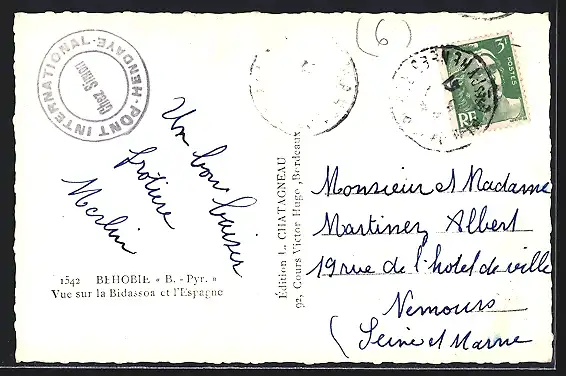 HENDAYE - PONT INTERNATIONAL -
Chez Simon
(6)
3F
POSTES
RF
PYRENEES
Un bon baiser
frotiere
Merlin
1542 BEHOBIE « B. - Pyr. »
Vue sur la Bidassoa et l'Espagne
Edition L. CHATAGNEAU
92, Cours Victor Hugo, Bordeaux
Monsieur et Madame
Martinez Albert
19 rue de l'hotel de ville
Nemours
(Seine et Marne